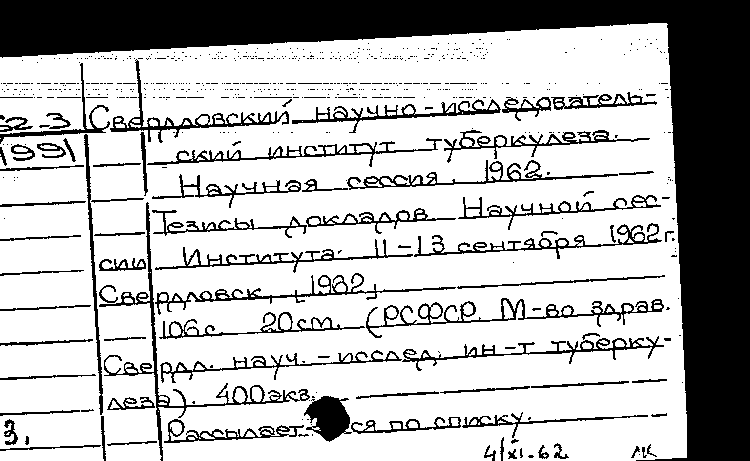 62-3 Свердловский научно-исследователь-
1991 ский институт туберкулеза.
Научная сессия. 1962.
Тезисы докладов Научной сес-
сии Института. 11-13 сентября 1962г.
Свердловск, [1962]
106с. 20см. (РСФСР. М-во здрав.
Свердл. науч.-исслед. ин-т туберку-
леза). 400экз.
Рассылается по списку.
3.
4/XI-62 ЛК